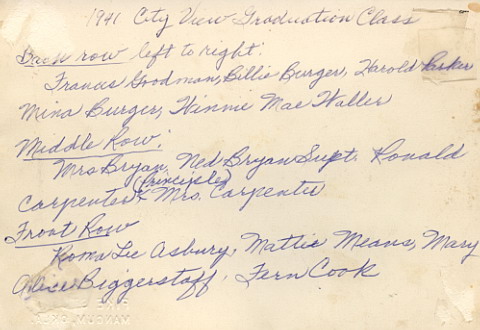 1941 City View Graduation Class
Back row left to right:
Frances Goodman, Billie Burger, Harold Parker
Mina Burger, Winnie Mae Waller
Middle Row:
Mrs Bryan, Ned Bryan Supt. Ronald
(Principle)
Carpenter & Mrs. Carpenter
Front Row
Roma Lee Asbury, Mattie Means, Mary
Alice Biggerstaff, Fern Cook